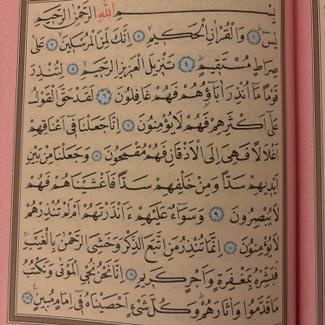 بِسْمِ اللّٰهِ الرَّحْمٰنِ الرَّحِيمِ
يٰسٓ ﴿١﴾ وَالْقُرْاٰنِ الْحَكِيمِ ﴿٢﴾ اِنَّكَ لَمِنَ الْمُرْسَلِينَ ﴿٣﴾ عَلٰى
صِرَاطٍ مُسْتَقِيمٍ ﴿٤﴾ تَنْزِيلَ الْعَزِيزِ الرَّحِيمِ ﴿٥﴾ لِتُنْذِرَ
قَوْمًا مَٓا اُنْذِرَ اٰبَٓاؤُ۬هُمْ فَهُمْ غَافِلُونَ ﴿٦﴾ لَقَدْ حَقَّ الْقَوْلُ
عَلٰٓى اَكْثَرِهِمْ فَهُمْ لَا يُؤْمِنُونَ ﴿٧﴾ اِنَّا جَعَلْنَا ف۪ٓى اَعْنَاقِهِمْ
اَغْلَالًا فَهِىَ اِلَى الْاَذْقَانِ فَهُمْ مُقْمَحُونَ ﴿٨﴾ وَجَعَلْنَا مِنْ بَيْنِ
اَيْد۪يهِمْ سَدًّا وَمِنْ خَلْفِهِمْ سَدًّا فَاَغْشَيْنَاهُمْ فَهُمْ
لَا يُبْصِرُونَ ﴿٩﴾ وَسَوَٓاءٌ عَلَيْهِمْ ءَاَنْذَرْتَهُمْ اَمْ لَمْ تُنْذِرْهُمْ
لَا يُؤْمِنُونَ ﴿١٠﴾ اِنَّمَا تُنْذِرُ مَنِ اتَّبَعَ الذِّكْرَ وَخَشِىَ الرَّحْمٰنَ بِالْغَيْبِ
فَبَشِّرْهُ بِمَغْفِرَةٍ وَاَجْرٍ كَر۪يمٍ ﴿١١﴾ اِنَّا نَحْنُ نُحْيِ الْمَوْتٰى وَنَكْتُبُ
مَا قَدَّمُوا وَاٰثَارَهُمْ وَكُلَّ شَىْءٍ اَحْصَيْنَاهُ ف۪ٓى اِمَامٍ مُب۪ينٍ ﴿١٢﴾